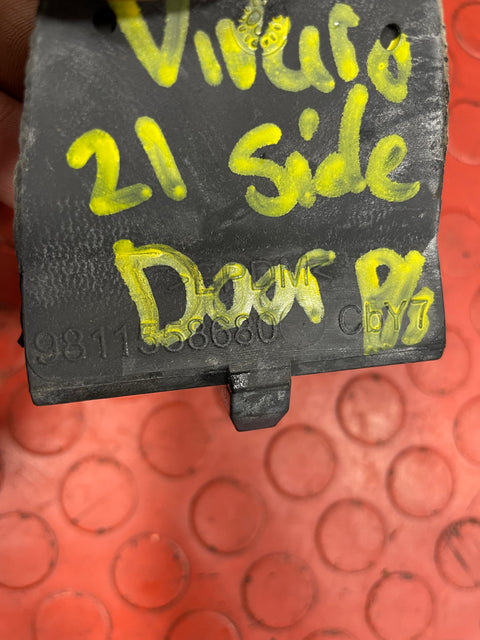 Vivaro
21 Side
Door
9811538680 CbY7